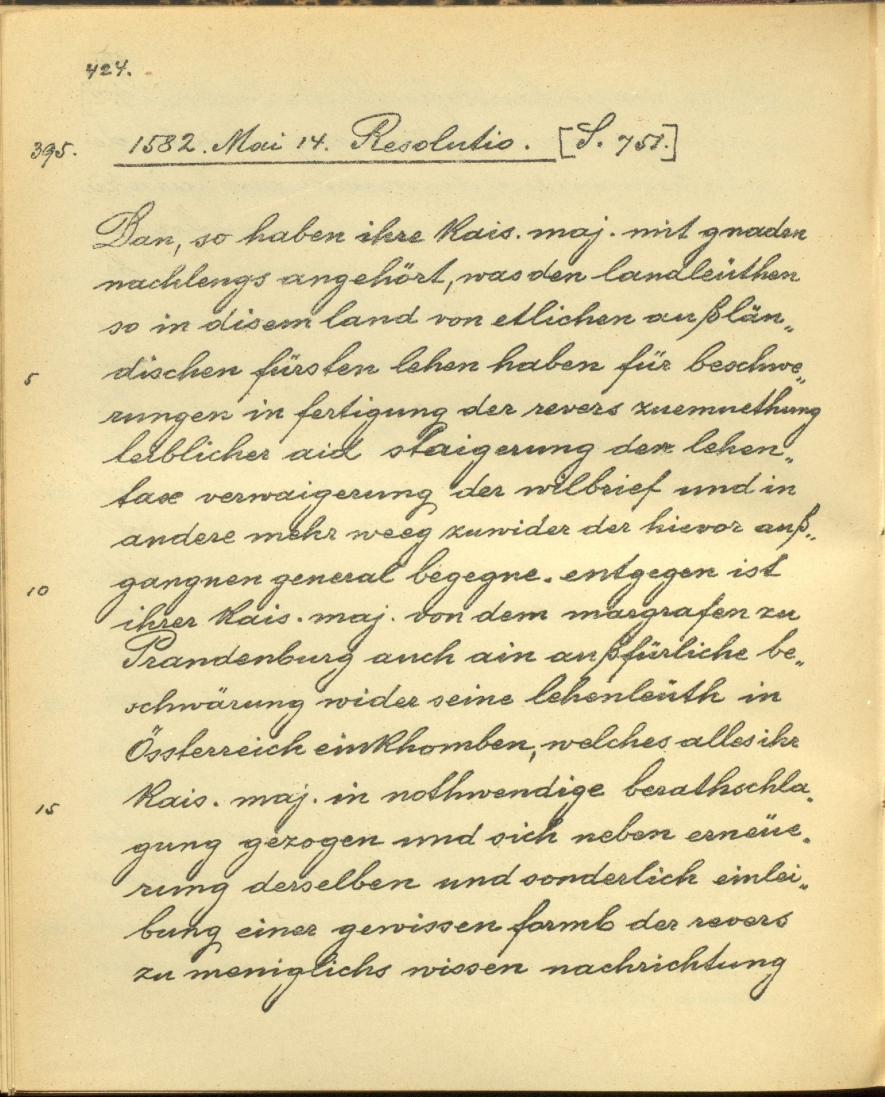 424.
395. 1582. Mai 14. Resolutio. [S. 751.]
Dan, so haben ihre Kais. maj. mit gnaden
nachlengs angehört, was den landleüthen
so in disem land von etlichen außlän„
5 dischen fürsten lehen haben für beschwe„
rungen in fertigung der revers zuemuethung
leiblicher aid staigerung der lehen„
tax verwaigerung der wilbrief und in
andere mehr weeg zuwider der hievor auß„
10 gangnen general begegne. entgegen ist
ihrer Kais. maj. von dem margrafen zu
Prandenburg auch ain außfürliche be„
schwärung wider seine lehenleüth in
Össterreich einkhomben, welches alles ihr
15 Kais. maj. in nothwendige berathschla„
gung gezogen und sich neben erneüe„
rung derselben und sonderlich einlei„
bung einer gewissen formb der revers
zu meniglichs wissen nachrichtung